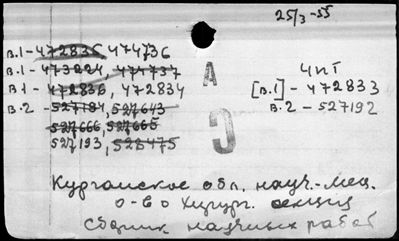 25/3-55
в.1-472836 474736
в.1-473224, 474737
в1-472836, 472834
в.2-527184, 527643
527666, 527665
527193, 528475
А
С
ЧПТ
[в.1]-472833
в.2-527192
Курганское обл. науч.-мед.
о-во Хирург. секция
Сборник научных работ